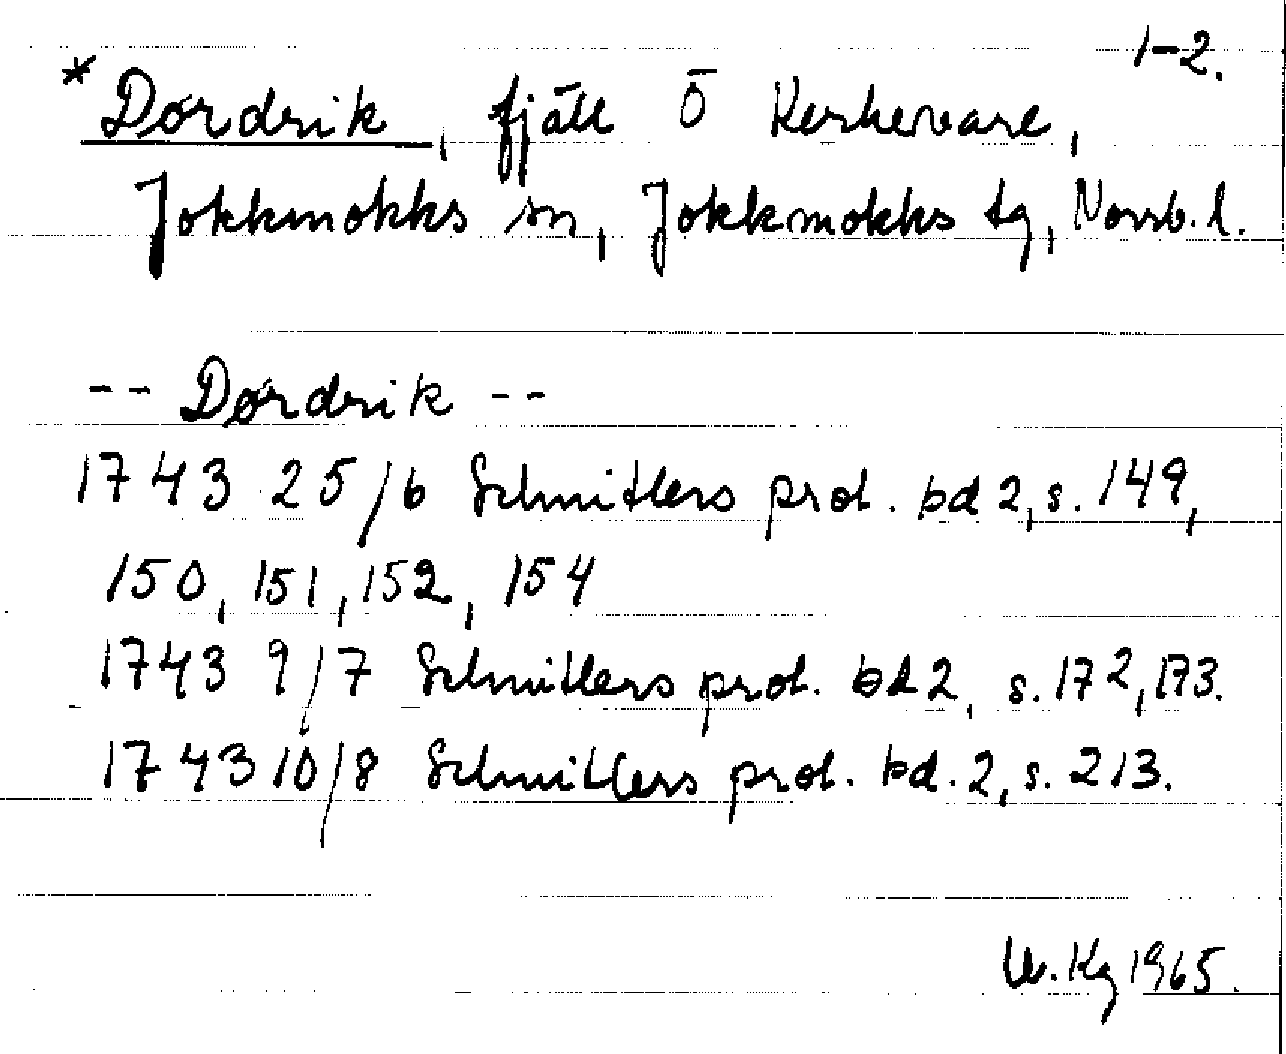 1-2.
*Dørdrik, fjäll Ö Kerkevare,
Jokkmokks sn, Jokkmokks tg, Norrb. l.
-- Dørdrik --
1743 25/6 Schnitlers prot. bd 2, s. 149,
150, 151, 152, 154
1743 9/7 Schnitlers prot. bd 2, s. 172, 173.
1743 10/8 Schnitlers prot. bd. 2, s. 213.
W. Kg 1965.